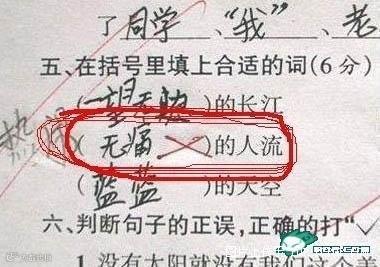 了同学、“我”、老
五、在括号里填上合适的词(6分)
(一望无)的长江
(无痛)的人流
(蓝蓝)的天空
六、判断句子的正误,正确的打“√
1.没有太阳就没有我们这个美